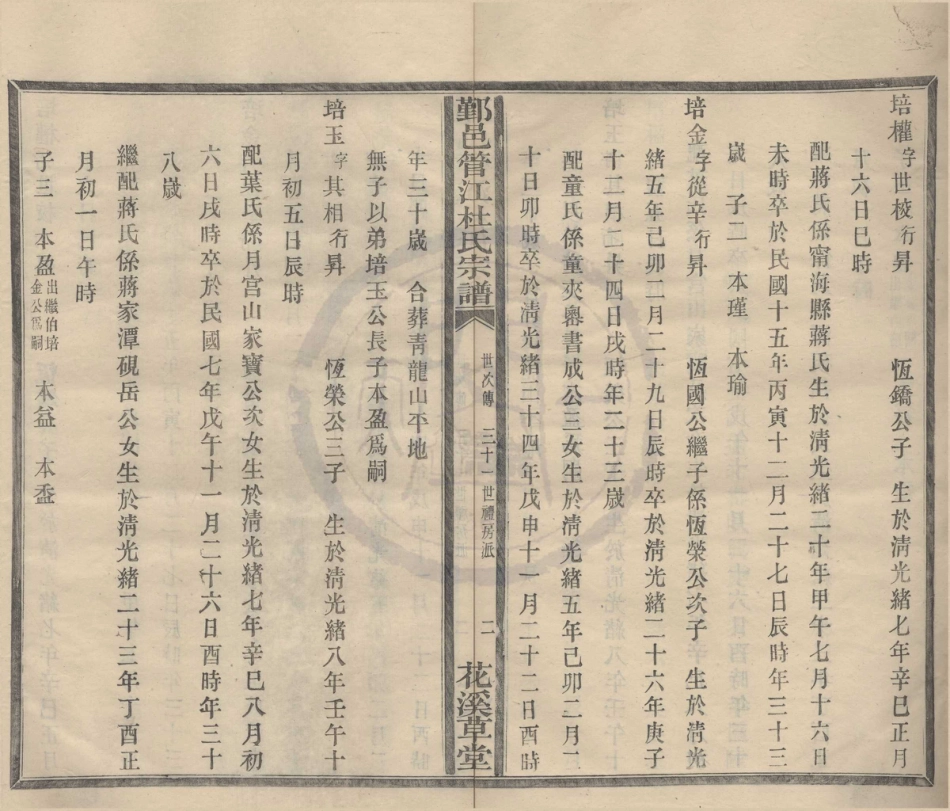 培權字世梭行昇　恆鐈公子　生於清光緒七年辛巳正月
十六日巳時
配蔣氏係甯海縣蔣氏生於清光緒二十年甲午七月十六日
未時卒於民國十五年丙寅十二月二十七日辰時年三十三
歲　子二　本瑾　本瑜
培金字從辛行昇　恆國公繼子係恆榮公次子　生於清光
緒五年己卯二月二十九日辰時卒於清光緒二十六年庚子
十二月二十四日戌時年二十三歲
配童氏係童夾嶴書成公三女生於清光緒五年己卯二月二
十日卯時卒於清光緒三十四年戊申十一月二十二日酉時
鄞邑管江杜氏宗譜　世次傳　三十一世禮房派　二　花溪草堂
年三十歲　合葬青龍山平地
無子以弟培玉公長子本盈爲嗣
培玉字其相行昇　恆榮公三子　生於清光緒八年壬午十
月初五日辰時
配葉氏係月宮山家寶公次女生於清光緒七年辛巳八月初
六日戌時卒於民國七年戊午十一月二十六日酉時年三十
八歲
繼配蔣氏係蔣家潭硯岳公女生於清光緒二十三年丁酉正
月初一日午時
子三　本盈出繼伯培金公爲嗣　本益　本盉